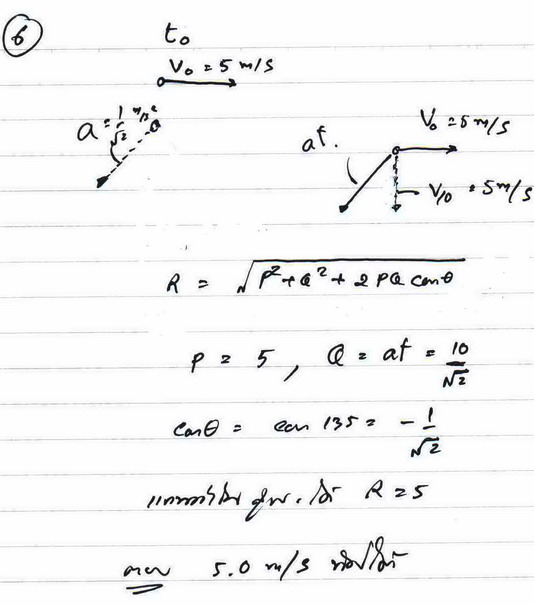 6
t₀
V₀ = 5 m/s
a = 1/√2 m/s²
at.
V₀ = 5 m/s
V₁₀ = 5 m/s
R = √(P² + Q² + 2PQ cos θ)
P = 5 , Q = at = 10/√2
cos θ = cos 135 = - 1/√2
R = 5
ตอบ 5.0 m/s